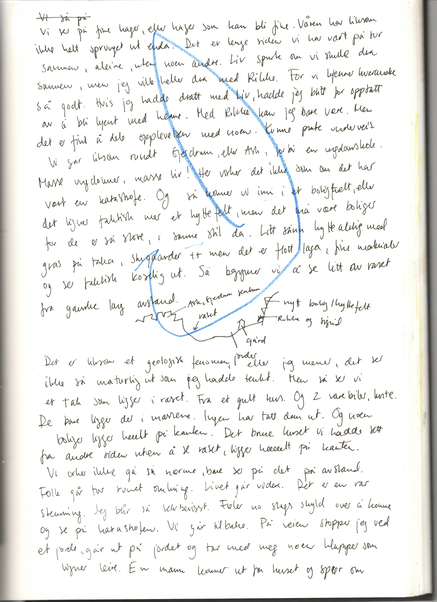 Vi så på
Vi ser på fine hager, eller hager som kan bli fine. Våren har liksom
ikke helt sprunget ut enda. Det er lenge siden vi har vært på tur
sammen, aleine, uten noen andre. Liv spurte om vi skulle dra
sammen, men jeg ville heller dra med Rikke. For vi kjenner hverandre
så godt. Hvis jeg hadde dratt med Liv, hadde jeg blitt for opptatt
av å bli kjent med henne. Med Rikke kan jeg bare være. Men
det er fint å dele opplevelsen med noen. Kunne prate underveis
Vi går liksom rundt Gjerdrum, eller Ask, forbi en ungdomskole.
Masse ungdommer, masse liv! Her virker det ikke som om det har
vært en katastrofe. Og så kommer vi inn i et boligfelt, eller
det ligner faktisk mer et hyttefelt, men det må være boliger
for de er så store, i samme stil da. Litt sånn hytteaktig med
gras på taket, men det er flott laga, fine materialer
og ser faktisk koselig ut. Så begynner vi å se litt av raset
fra ganske lang avstand.
Ask, Gjerdrum sentrum
raset
nytt bolig/hyttefelt
Rikke og
gård
jorder
Det er liksom et geologisk fenomen, eller jeg mener, det ser
ikke så naturlig ut som jeg hadde tenkt. Men så ser vi
et tak som ligger i raset. Fra et gult hus. Og 2 varebiler, hvite.
De bare ligger der i massene. Ingen har tatt dem ut. Og noen
boliger ligger heeelt på kanten. Det brune huset vi hadde sett
fra andre siden uten å se raset, ligger heeelt på kanten.
Vi orker ikke gå så nærme, bare ser på det på avstand.
Folk går tur rundt omkring. Livet går videre. Det er en rar
stemning. Jeg blir så selvbevisst. Føler no slags skyld over å komme
og se på katastrofen. Vi går tilbake. På veien stopper jeg ved
et jorde, går ut på jordet og tar med meg noen klumper som
ligner leire. En mann kommer ut fra huset og spør om